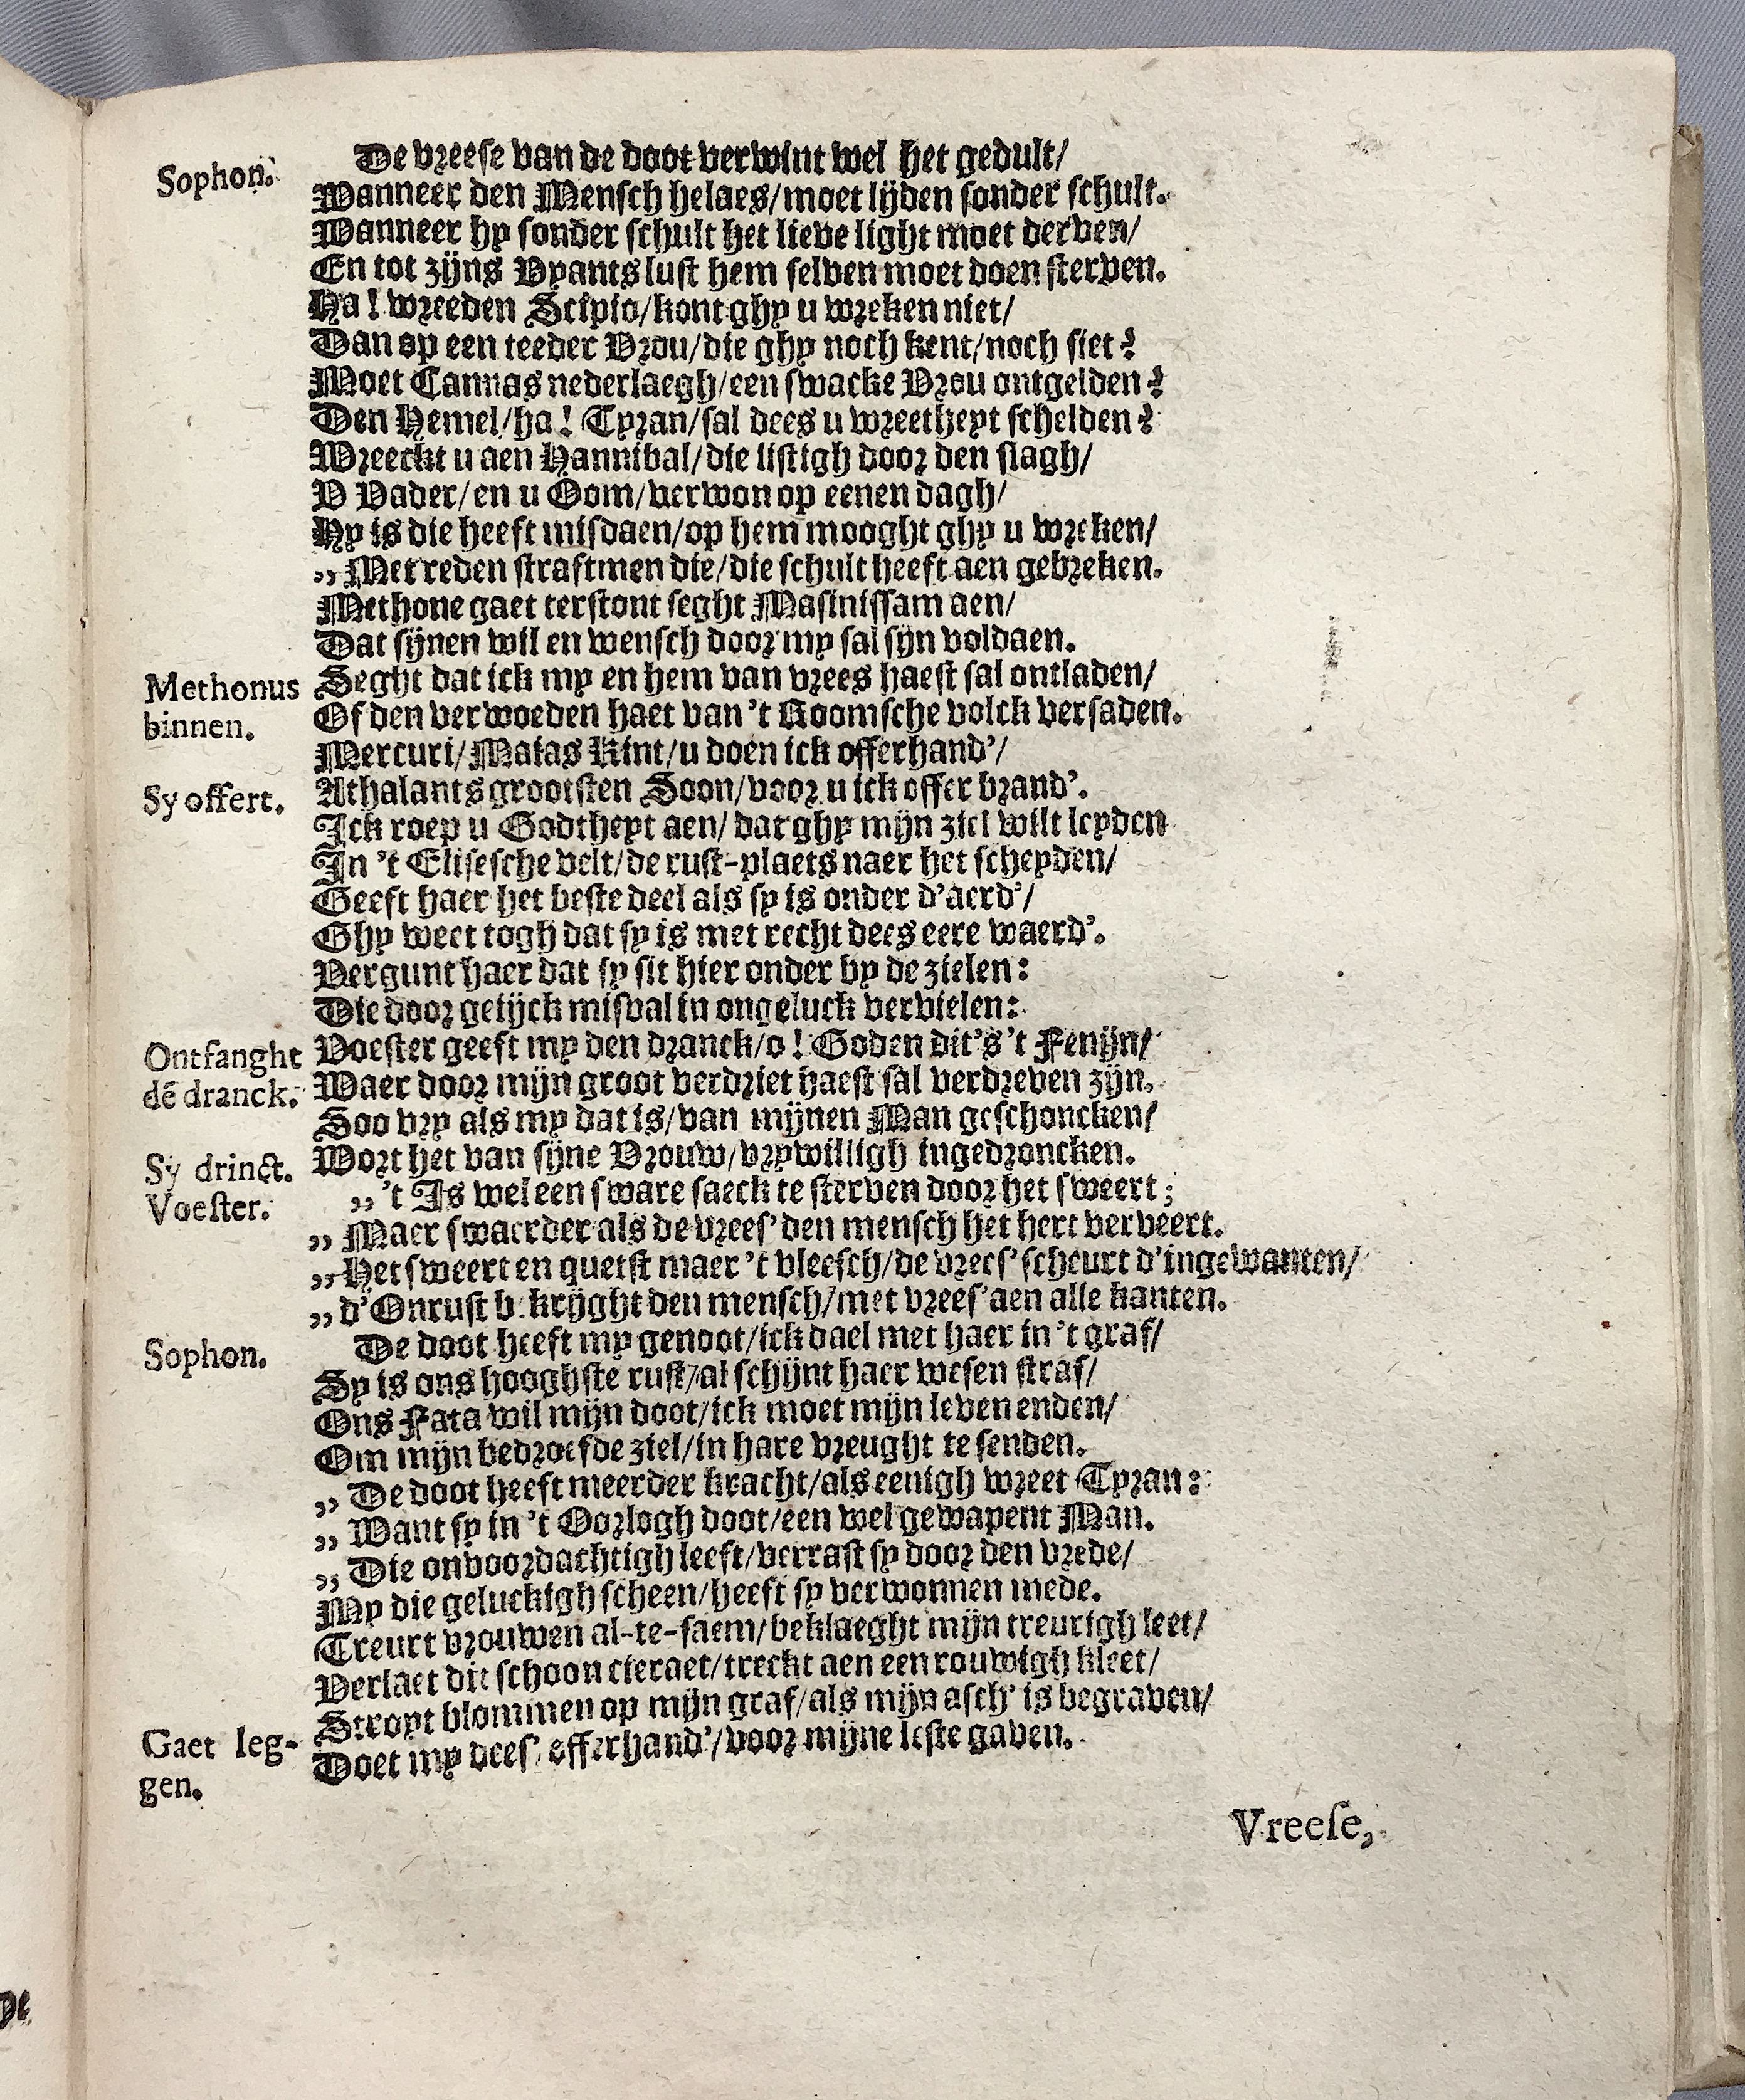 Sophon. De vreese van de doot verwint wel het gedult/
Wanneer den Mensch helaes/moet lijden sonder schult.
Wanneer hy sonder schult het lieve light moet derven/
En tot zijns Vyants lust hem selven moet doen sterven.
Ha! wreeden Scipio/kont ghy u wreken niet/
Dan op een teeder Vrou/die ghy noch kent/noch siet?
Moet Cannas nederlaegh/een swacke Vrou ontgelden?
Den Hemel/ha! Tyran/sal dees u wreetheyt schelden?
Wreeckt u aen Hannibal/die listigh door den slagh/
V Vader/en u Oom/verwon op eenen dagh/
Hy is die heeft misdaen/op hem mooght ghy u wreken/
„ Met reden straftmen die/die schult heeft aen gebreken.
Methone gaet terstont seght Masinissam aen/
Dat sijnen wil en wensch door my sal sijn voldaen.
Methonus Seght dat ick my en hem van vrees haest sal ontladen/
binnen. Of den verwoeden haet van 't Roomsche volck versaden.
Mercuri/Maias Kint/u doen ick offerhand'/
Sy offert. Athalants grootsten Soon/voor u ick offer brand'.
Ick roep u Godtheyt aen/dat ghy mijn ziel wilt leyden
In 't Elisesche velt/de rust-plaets naer het scheyden/
Geeft haer het beste deel als sy is onder d'aerd'/
Ghy weet togh dat sy is met recht dees eere waerd'.
Vergunt haer dat sy sit hier onder by de zielen:
Die door gelijck misval in ongeluck vervielen:
Ontfanght Voester geeft my den dranck/o! Goden dit's 't Fenijn/
dē dranck. Waer door mijn groot verdriet haest sal verdreven zijn.
Soo vry als my dat is/van mijnen Man geschoncken/
Sy drinct. Wort het van sijne Vrouw/vrywilligh ingedroncken.
Voester. „ 't Is wel een sware saeck te sterven door het sweert;
„ Maer swaerder als de vrees' den mensch het hert verveert.
„ Het sweert en quetst maer 't vleesch/de vrees' scheurt d'ingewanten/
„ d'Onrust b:krijght den mensch/met vrees' aen alle kanten.
Sophon. De doot heeft my genoot/ick dael met haer in 't graf/
Sy is ons hooghste rust/al schijnt haer wesen straf/
Ons Fata wil mijn doot/ick moet mijn leven enden/
Om mijn bedroefde ziel/in hare vreught te senden.
„ De doot heeft meerder kracht/als eenigh wreet Tyran:
„ Want sy in 't Oorlogh doot/een wel gewapent Man.
„ Die onvoordachtigh leeft/verrast sy door den vrede/
My die geluckigh scheen/heeft sy verwonnen mede.
Treurt vrouwen al-te-saem/beklaeght mijn treurigh leet/
Verlaet dit schoon cieraet/treckt aen een rouwigh kleet/
Stroyt blommen op mijn graf/als mijn asch' is begraven/
Gaet leg- Doet my dees' offerhand'/voor mijne leste gaven.
gen.
Vreese,